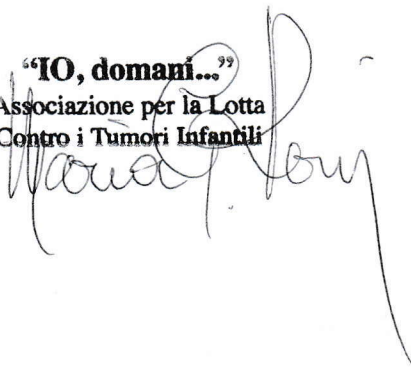 “IO, domani...”
Associazione per la Lotta
Contro i Tumori Infantili
Maria G.